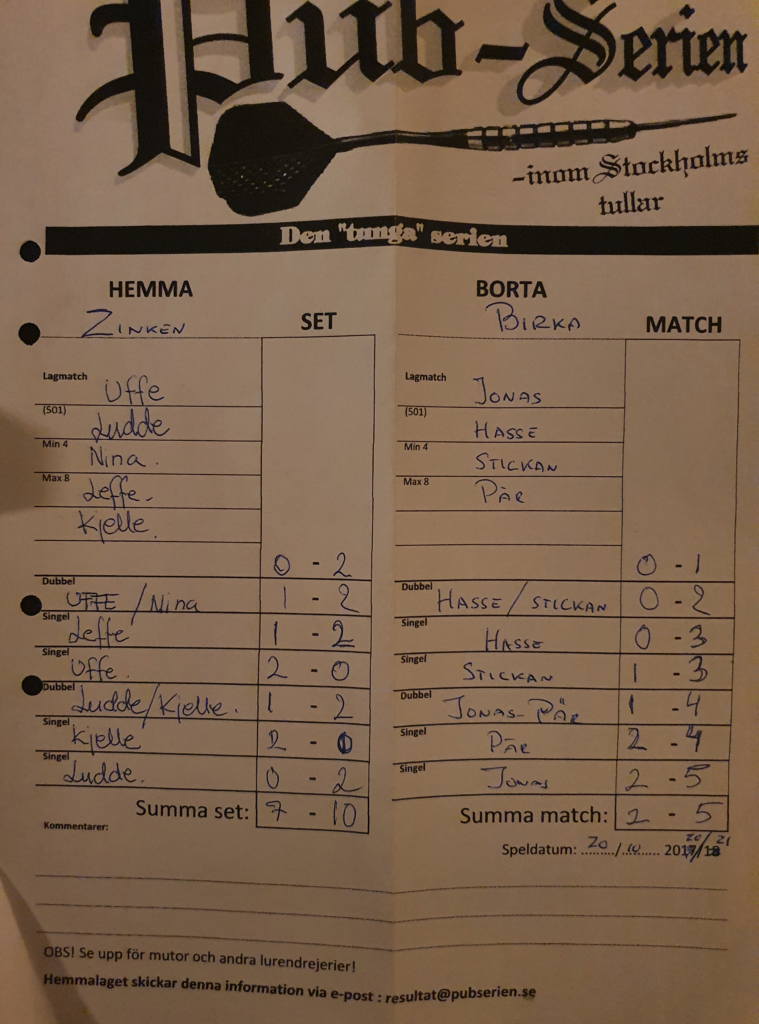 Pub-Serien
-inom Stockholms
tullar
Den "tunga" serien
HEMMA
BORTA
ZINKEN SET BIRKA MATCH
Lagmatch Uffe Lagmatch JONAS
(501) Ludde (501) HASSE
Min 4 Nina. Min 4 STICKAN
Max 8 Leffe. Max 8 PÄR
Kjelle.
0 - 2 0 - 1
Dubbel UFFE / Nina 1 - 2 Dubbel HASSE / STICKAN 0 - 2
Singel Leffe 1 - 2 Singel HASSE 0 - 3
Singel Uffe. 2 - 0 Singel STICKAN 1 - 3
Dubbel Ludde/Kjelle. 1 - 2 Dubbel JONAS- PÄR 1 - 4
Singel Kjelle 2 - 0 Singel PÄR 2 - 4
Singel Ludde. 0 - 2 Singel JONAS 2 - 5
Summa set: 7 - 10 Summa match: 2 - 5
Kommentarer:
Speldatum: 20 / 10 2017/18 20/21
OBS! Se upp för mutor och andra lurendrejerier!
Hemmalaget skickar denna information via e-post : resultat@pubserien.se